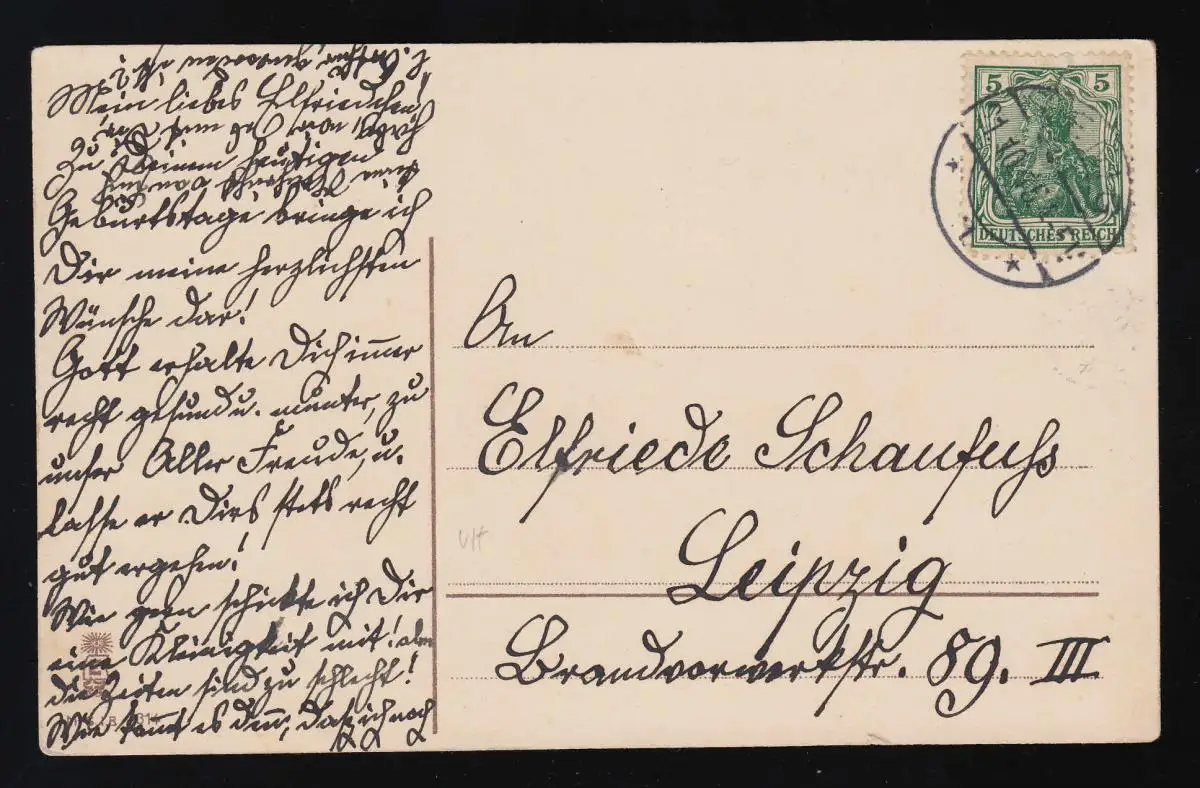 Mein liebes Elfriedchen!
Zu Deinem heutigen
Geburtstage bringe ich
Dir meine herzlichsten
Wünsche dar!
Gott erhalte Dich immer
recht gesund u. munter, zu
unser Aller Freude, u.
lasse er Dirs stets recht
gut ergehen!
Wie gern schickte ich Dir
eine Kleinigkeit mit! aber
die Zeiten sind zu schlecht!
Wie kommt es denn, daß ich noch
5 5
DEUTSCHES REICH
An
Elfriede Schaufuß
Leipzig
Brandvorwerkstr. 89. III